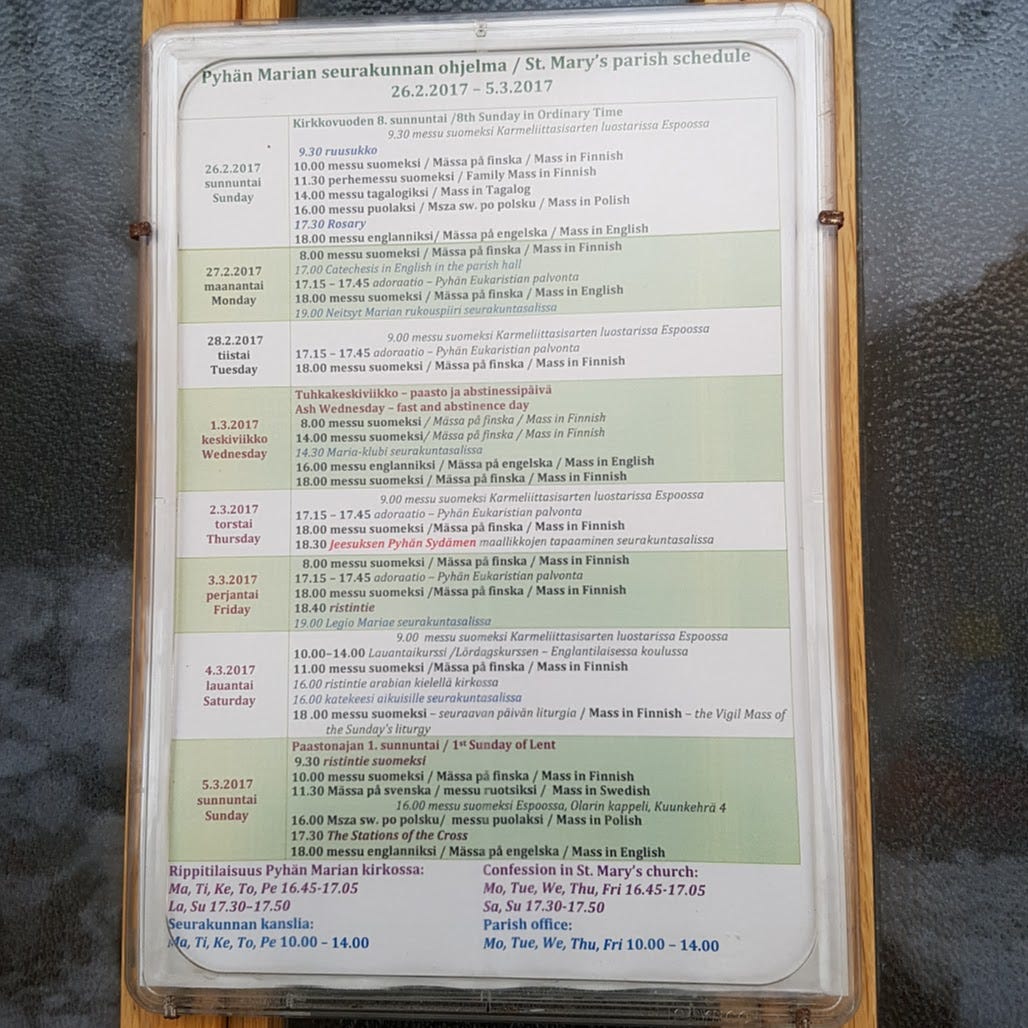 Pyhän Marian seurakunnan ohjelma / St. Mary's parish schedule
26.2.2017 – 5.3.2017
26.2.2017
sunnuntai
Sunday
Kirkkovuoden 8. sunnuntai /8th Sunday in Ordinary Time
9.30 messu suomeksi Karmeliittasisarten luostarissa Espoossa
9.30 ruusukko
10.00 messu suomeksi / Mässa på finska / Mass in Finnish
11.30 perhemessu suomeksi / Family Mass in Finnish
14.00 messu tagalogiksi / Mass in Tagalog
16.00 messu puolaksi / Msza sw. po polsku / Mass in Polish
17.30 Rosary
18.00 messu englanniksi/ Mässa på engelska / Mass in English
27.2.2017
maanantai
Monday
8.00 messu suomeksi / Mässa på finska / Mass in Finnish
17.00 Catechesis in English in the parish hall
17.15 – 17.45 adoraatio – Pyhän Eukaristian palvonta
18.00 messu suomeksi / Mässa på finska / Mass in English
19.00 Neitsyt Marian rukouspiiri seurakuntasalissa
28.2.2017
tiistai
Tuesday
9.00 messu suomeksi Karmeliittasisarten luostarissa Espoossa
17.15 – 17.45 adoraatio – Pyhän Eukaristian palvonta
18.00 messu suomeksi / Mässa på finska / Mass in Finnish
1.3.2017
keskiviikko
Wednesday
Tuhkakeskiviikko – paasto ja abstinessipäivä
Ash Wednesday – fast and abstinence day
8.00 messu suomeksi / Mässa på finska / Mass in Finnish
14.00 messu suomeksi/ Mässa på finska / Mass in Finnish
14.30 Maria-klubi seurakuntasalissa
16.00 messu englanniksi / Mässa på engelska / Mass in English
18.00 messu suomeksi / Mässa på finska / Mass in Finnish
2.3.2017
torstai
Thursday
9.00 messu suomeksi Karmeliittasisarten luostarissa Espoossa
17.15 – 17.45 adoraatio – Pyhän Eukaristian palvonta
18.00 messu suomeksi /Mässa på finska / Mass in Finnish
18.30 Jeesuksen Pyhän Sydämen maallikkojen tapaaminen seurakuntasalissa
3.3.2017
perjantai
Friday
8.00 messu suomeksi / Mässa på finska / Mass in Finnish
17.15 – 17.45 adoraatio – Pyhän Eukaristian palvonta
18.00 messu suomeksi /Mässa på finska / Mass in Finnish
18.40 ristintie
19.00 Legio Mariae seurakuntasalissa
4.3.2017
lauantai
Saturday
9.00 messu suomeksi Karmeliittasisarten luostarissa Espoossa
10.00–14.00 Lauantaikurssi /Lördagskurssen – Englantilaisessa koulussa
11.00 messu suomeksi /Mässa på finska / Mass in Finnish
16.00 ristintie arabian kielellä kirkossa
16.00 katekeesi aikuisille seurakuntasalissa
18 .00 messu suomeksi – seuraavan päivän liturgia / Mass in Finnish – the Vigil Mass of
the Sunday's liturgy
5.3.2017
sunnuntai
Sunday
Paastonajan 1. sunnuntai / 1st Sunday of Lent
9.30 ristintie suomeksi
10.00 messu suomeksi / Mässa på finska / Mass in Finnish
11.30 Mässa på svenska / messu ruotsiksi / Mass in Swedish
16.00 messu suomeksi Espoossa, Olarin kappeli, Kuunkehrä 4
16.00 Msza sw. po polsku/ messu puolaksi / Mass in Polish
17.30 The Stations of the Cross
18.00 messu englanniksi / Mässa på engelska / Mass in English
Rippitilaisuus Pyhän Marian kirkossa:
Ma, Ti, Ke, To, Pe 16.45-17.05
La, Su 17.30–17.50
Seurakunnan kanslia:
Ma, Ti, Ke, To, Pe 10.00 – 14.00
Confession in St. Mary's church:
Mo, Tue, We, Thu, Fri 16.45-17.05
Sa, Su 17.30-17.50
Parish office:
Mo, Tue, We, Thu, Fri 10.00 – 14.00